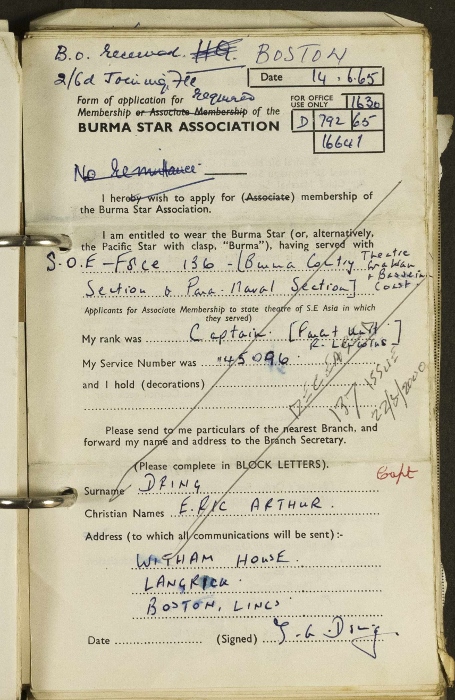 B.O. received. HQ. BOSTON
2/6d Joining Fee
Required
Date 14.6.65
Form of application for
Membership or Associate Membership of the
BURMA STAR ASSOCIATION
FOR OFFICE USE ONLY 11630
D 792 65
16641
No Remittance
I hereby wish to apply for (Associate) membership of
the Burma Star Association.
I am entitled to wear the Burma Star (or, alternatively,
the Pacific Star with clasp, "Burma"), having served with
S.O.E - Force 136 - [Burma Country Theatre
Section & Para-Naval Section] Arakan
& Bassein
Coast
Applicants for Associate Membership to state theatre of S.E Asia in which
they served)
My rank was Captain. [Parent Unit
R. Leicesters]
My Service Number was 45096
and I hold (decorations)
DECEASED
137 ISSUE
22/3/2000
Please send to me particulars of the nearest Branch, and
forward my name and address to the Branch Secretary.
(Please complete in BLOCK LETTERS).
Capt
Surname DRING
Christian Names ERIC ARTHUR.
Address (to which all communications will be sent):-
WITHAM HOUSE.
LANGRICK.
BOSTON, LINCS
Date (Signed) E. A. Dring